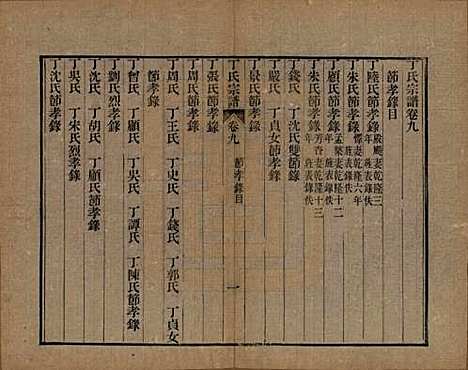 丁氏宗譜卷九
節孝錄目
丁陸氏節孝錄 殿颺妻乾隆三年旌表錄佚
丁朱氏節孝錄 妻乾隆六年旌表錄佚
丁顧氏節孝錄 孟榮妻乾隆十二年旌表錄佚
丁朱氏節孝錄 芳杏妻乾隆十三年旌表錄佚
丁錢氏 丁沈氏雙節錄
丁嚴氏 丁貞女節孝錄
丁景氏節孝錄
丁氏宗譜 卷九 節孝錄目 一
丁張氏節孝錄
丁周氏節孝錄
丁周氏 丁王氏 丁史氏 丁錢氏 丁郭氏 丁貞女
節孝錄
丁曾氏 丁顧氏 丁吳氏 丁譚氏 丁陳氏節孝錄
丁劉氏烈孝錄
丁沈氏 丁胡氏 丁顧氏節孝錄
丁吳氏 丁宋氏烈孝錄
丁沈氏節孝錄